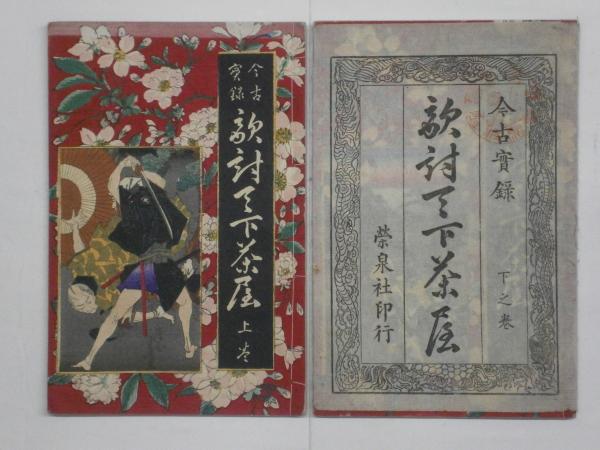 今古
實録
敵討天下茶屋
上巻
今古實録
敵討天下茶屋
下之巻
榮泉社印行